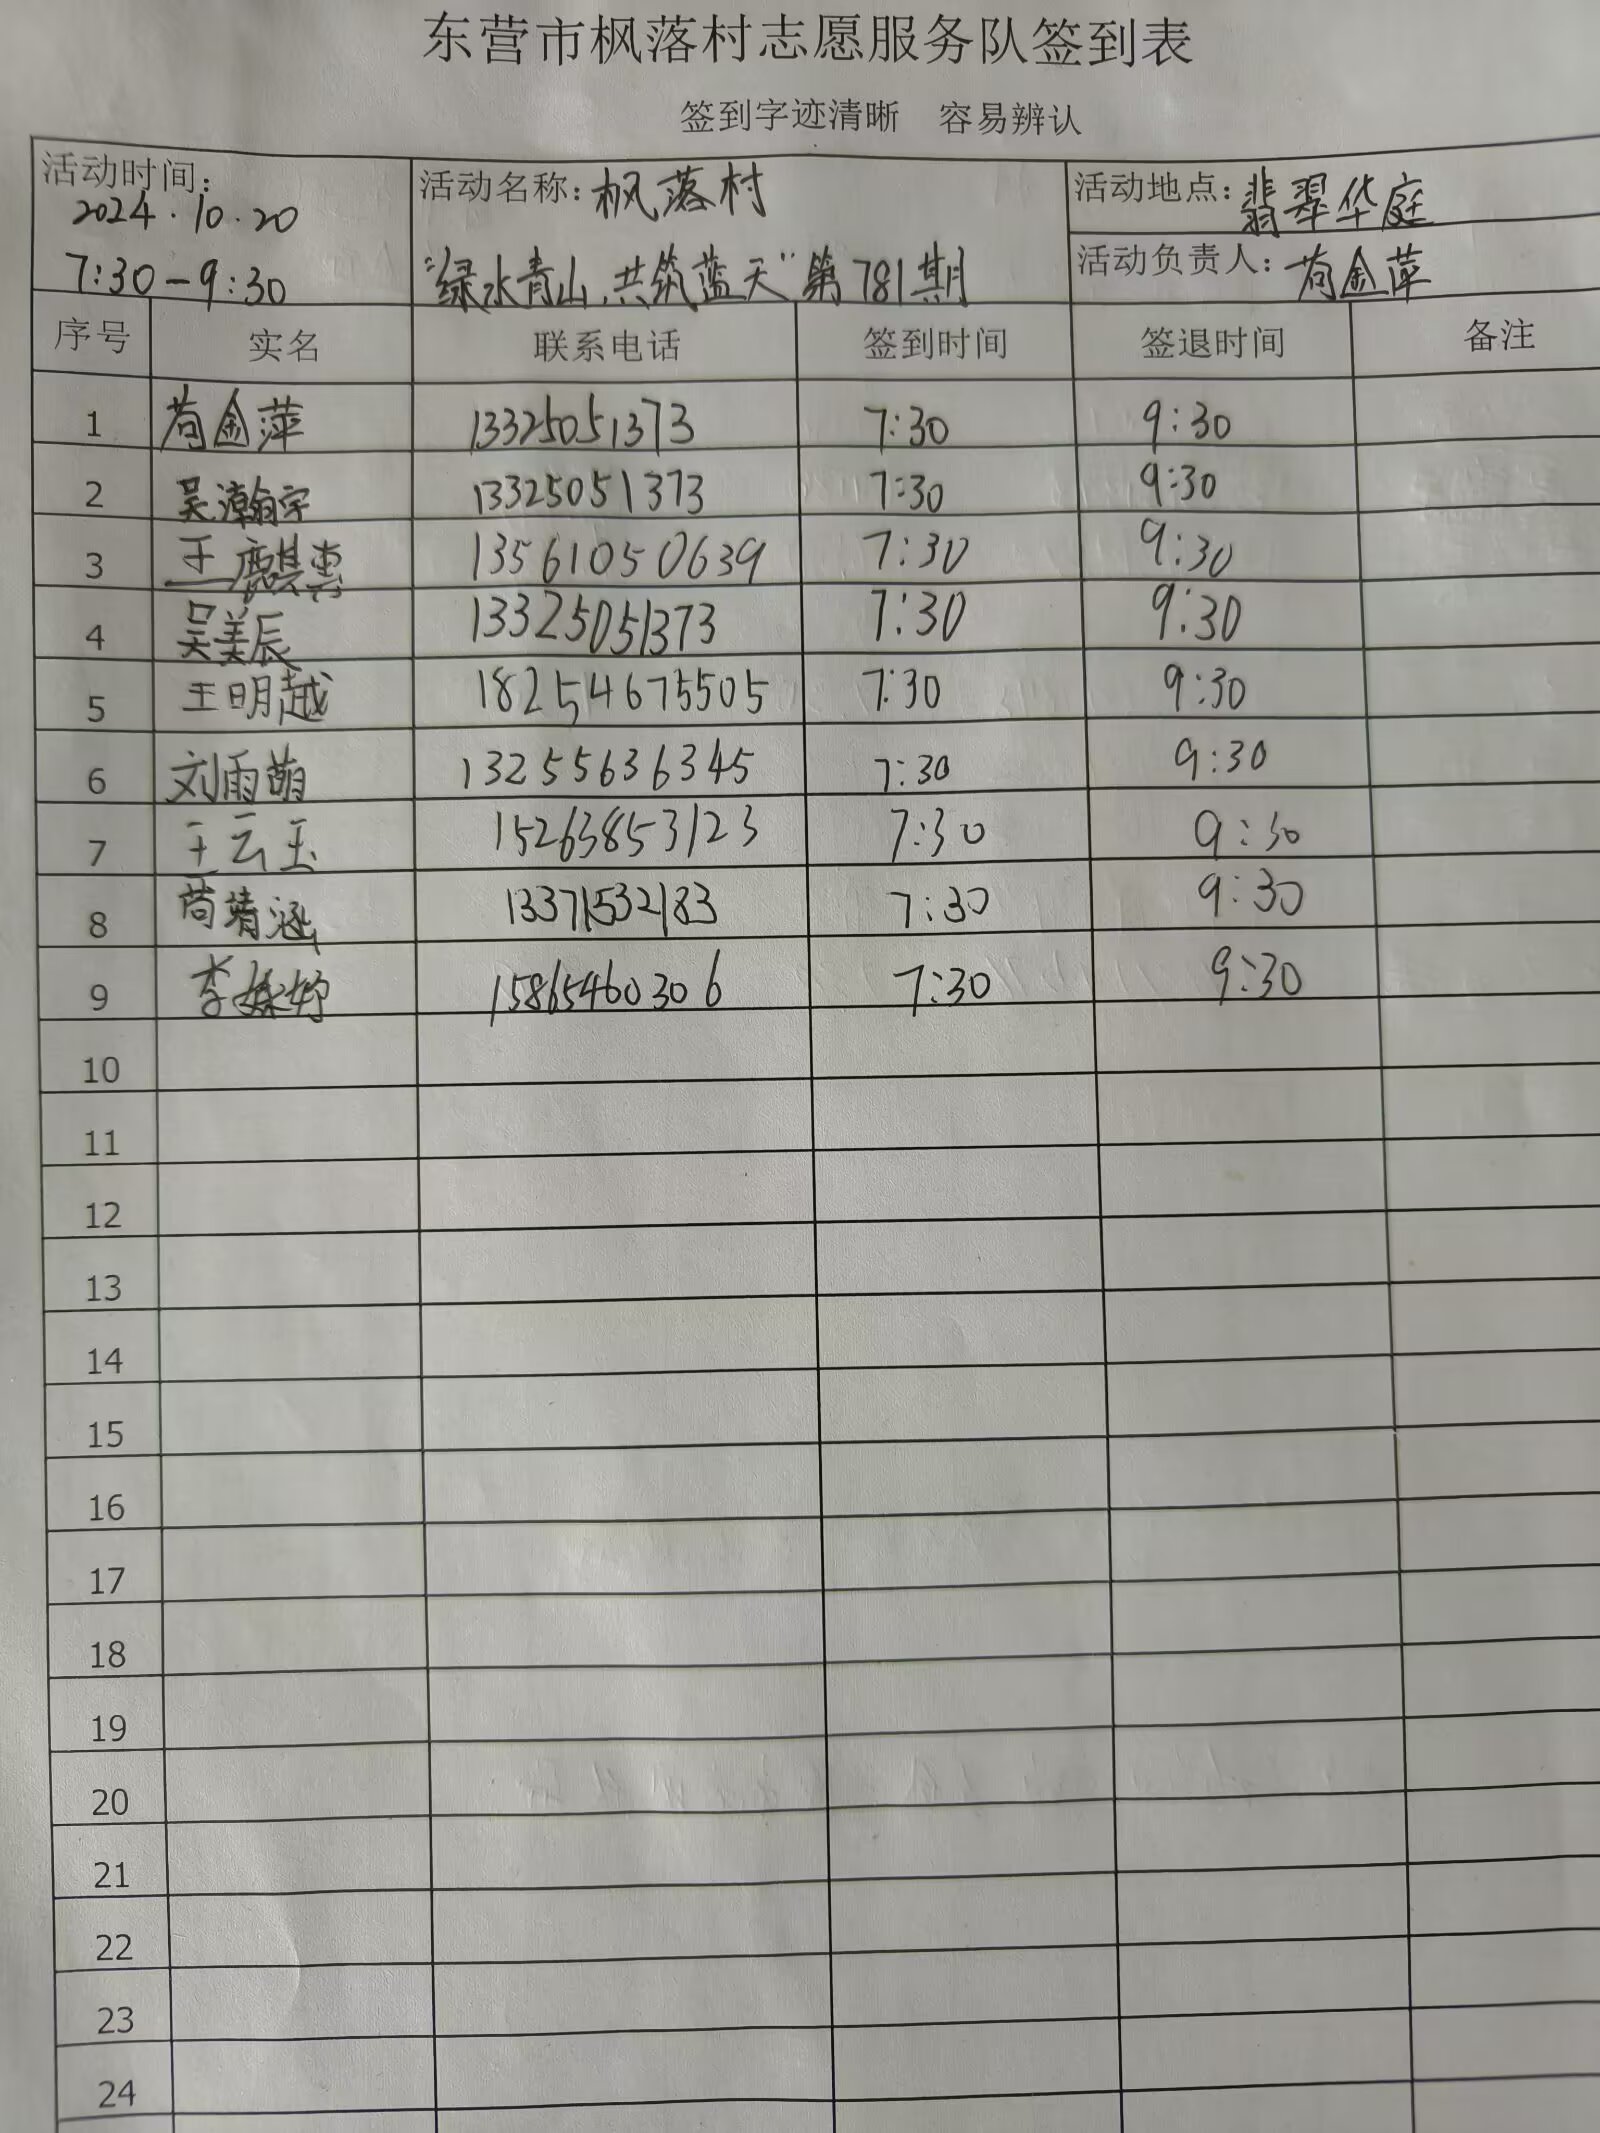 东营市枫落村志愿服务队签到表
签到字迹清晰 容易辨认
活动时间:
2024.10.20
7:30-9:30
活动名称: 枫落村
"绿水青山,共筑蓝天"第781期
活动地点: 翡翠华庭
活动负责人: 苟金萍
序号 实名 联系电话 签到时间 签退时间 备注
1 苟金萍 13325051373 7:30 9:30
2 吴瀚宇 13325051373 7:30 9:30
3 王麒惠 13561050639 7:30 9:30
4 吴美辰 13325051373 7:30 9:30
5 王明越 18254675505 7:30 9:30
6 刘雨萌 13255636345 7:30 9:30
7 王云玉 15263853123 7:30 9:30
8 苟靖涵 13371532183 7:30 9:30
9 李 15865460306 7:30 9:30
10
11
12
13
14
15
16
17
18
19
20
21
22
23
24